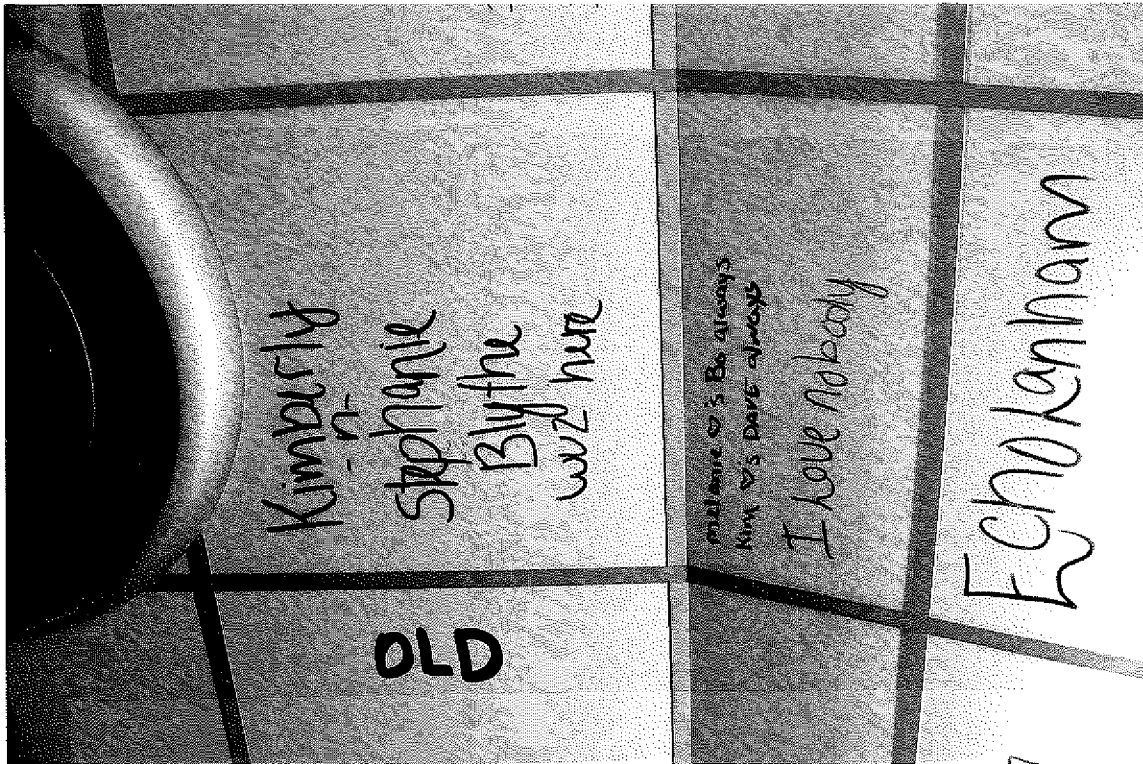 Kimberly
-n-
Stephanie
Blythe
wuz here
melanie ♡'s Bo always
Kim ♡'s DAVE always
I Love nobody
Echo Lanham
OLD